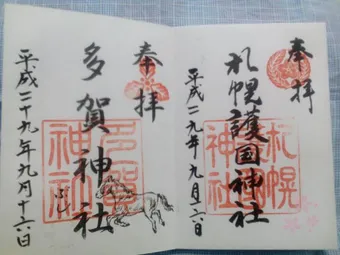 奉拝
札幌護国神社
平成二九年九月十六日
奉拝
多賀神社
多賀神社
平成二十九年九月十六日